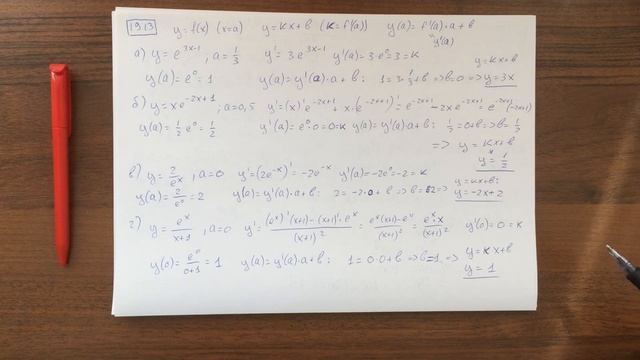 19.13 y=f(x) (x=a) y=kx+b (k=f'(a)) y(a)=f'(a)·a+b
y'(a)
а) y=e^{3x-1}, a=1/3 y'=3·e^{3x-1} y'(a)=3·e⁰=3=k y=kx+b
y(a)=e⁰=1 y(a)=y'(a)·a+b: 1=3·1/3+b ⇒ b=0 ⇒ y=3x
б) y=xe^{-2x+1}; a=0,5 y'=(x)'e^{-2x+1}+x·(e^{-2x+1})'=e^{-2x+1}-2xe^{-2x+1}=e^{-2x+1}(-2x+1)
y(a)=1/2 e⁰=1/2 y'(a)=e⁰·0=0=k y(a)=y'(a)·a+b: 1/2=0+b ⇒ b=1/2
⇒ y=kx+b
y=1/2
в) y=2/e^x, a=0 y'=(2e^{-x})'=-2e^{-x} y'(a)=-2e⁰=-2=k
y=kx+b:
y(a)=2/e⁰=2 y(a)=y'(a)·a+b: 2=-2·0+b ⇒ b=2 ⇒ y=-2x+2
г) y=e^x/(x+1), a=0 y'=((e^x)'(x+1)-(x+1)'·e^x)/(x+1)²=(e^x(x+1)-e^x)/(x+1)²=e^x·x/(x+1)² y'(0)=0=k
y(0)=e⁰/(0+1)=1 y(a)=y'(a)·a+b: 1=0·0+b ⇒ b=1 ⇒ y=kx+b
y=1